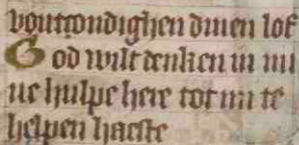 vountcondighen dinen lof
God wilt denken in mi
ne hulpe here tot mi te
helpen haeste